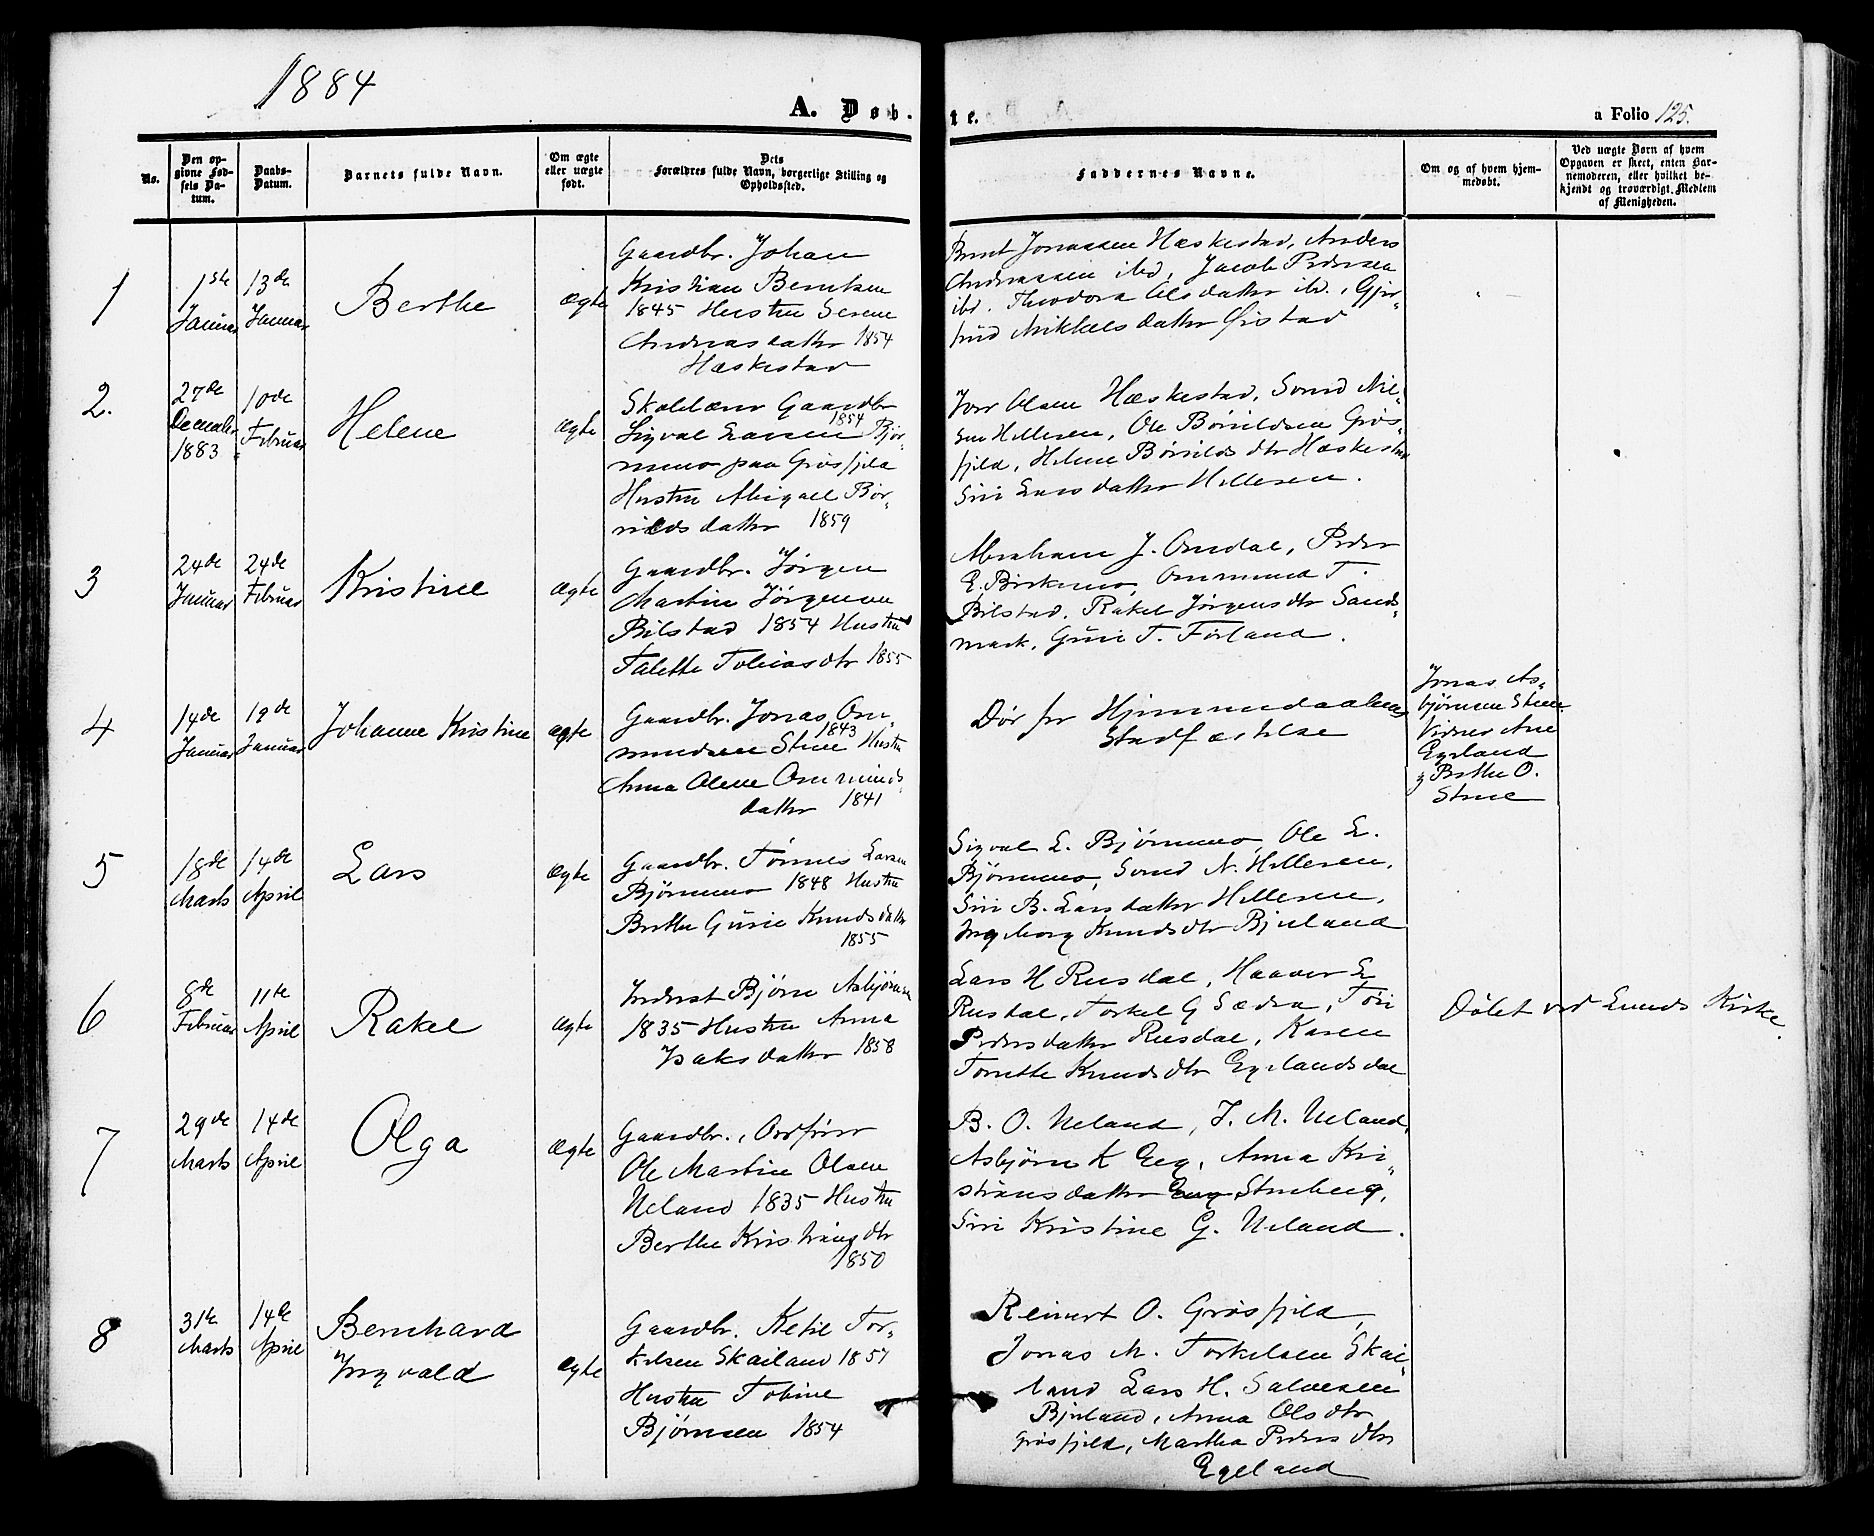 1884
A. Døb-
te.
a Folio 125.
No.
Den op-
givne Fød-
sels Da-
tum.
Daabs-
Datum.
Barnets fulde Navn.
Om ægte
eller uægte
født.
Dets
Forældres fulde Navn, borgerlige Stilling og
Opholdssted.
Faddernes Navne.
Om og af hvem hjem-
medøbt.
Ved uægte Børn af hvem
Opgaven er skeet, enten Bar-
nemoderen, eller hvilket be-
kjendt og troværdigt Medlem
af Menigheden.
1
1ste
Januar
13de
Januar
Berthe
Ægte
Gaardbr. Johan
Kristian Berntsen
1845 Hustru Serene
Andreasdatter 1854
Hæskestad
Bernt Jonassen Hæskestad, Anders
Andreassen ibd, Jacob Pedersen
ibd. Theodora Olsdatter ibd., Gjer-
trud Mikkelsdatter Ørstad
2.
27de
December
1883
10de
Februar
Helene
Ægte
Skolelærer Gaardbr
Sigval Larsen 1854 Bjør-
nemo paa Grøsfjeld
Hustru Abigael Bør-
rildsdatter 1859
Olsen Hæskestad, Svend Niel-
sen Hellesen, Ole Børrildsen Grøs-
fjeld, Helene Børrildsdtr Hæskestad
Siri Larsdatter Hellesen.
3
24de
Januar
24de
Februar
Kristine
Ægte
Gaardbr. Jørgen
Martin Jørgensen
Bilstad 1854 Hustru
Talette Tobiasdtr 1855
Abraham J. Omdal, Peder
E. Birkemo, Ommund T.
Bilstad, Rakel Jørgensdtr Sand-
mark, Guri T. Førland.
4
14de
Januar
19de
Januar
Johanne Kristine
Ægte
Gaardbr. Jonas Om-
mundsen 1843 Stene Hustru
Anna Olene Ommunds-
datter 1841
Dør før Hjemmedaabens
Stadfæstelse
Jonas As-
bjørnsen Stene
Vidner Ane
Egeland
g Berthe O.
Stene
5
18de
Marts
14de
April
Lars
Ægte
Gaardbr. Tønnes Larsen
Bjørnemo 1848 Hustru
Berthe Gurie Knudsdatter
1855
Sigval L. Bjørnemo, Ole L.
Bjørnemo, Svend N. Hellesen,
Siri B. Larsdatter Hellesen,
Ingeborg Knudsdtr Bjerland
6
8de
Februar
11te
April
Rakel
Ægte
Inderst Bjørn Asbjørnsen
1835 Hustru Anna
Isaksdatter 1858
Lars H Rusdal, Haaver L
Rusdal, Torkel G Sædra, Tøri
Pedersdatter Rusdal, Karen
Tonette Knudsdtr Egelandsdal
Døbt ved Lunds Kirke.
7
29de
Marts
14de
April
Olga
Ægte
Gaardbr., Ordfører
Ole Martin Olsen
Ueland 1835 Hustru
Berthe Kristiansdtr
1850
B. O. Ueland, T. M. Ueland,
Asbjørn K Eeg, Anna Kri-
stiansdatter Stenberg,
Siri Kristine G. Ueland.
8
31te
Marts
14de
April
Bernhard
Ingvald
Ægte
Gaardbr. Ketil Tor-
kelsen Skailand 1857
Hustru Tobine
Bjørnsen 1854
Reinert O. Grøsfjeld,
Jonas M. Torkelsen Skai-
land Lars H. Salvesen
Bjerland, Anna Olsdtr
Grøsfjeld, Martha Pedersdtr
Egeland